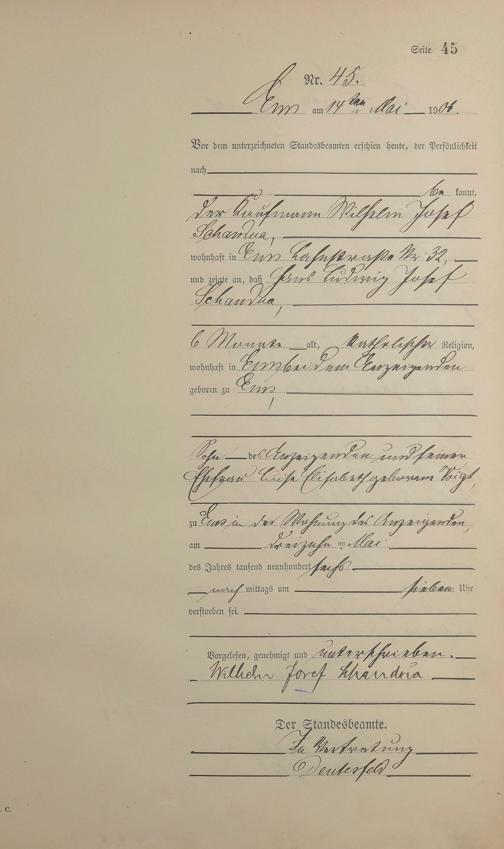 Seite 45
Nr. 45.
Ems am 14ten Mai 1906.
Vor dem unterzeichneten Standesbeamten erschien heute, der Persönlichkeit
nach
be kannt,
der Kaufmann Wilhelm Josef
Schandua,
wohnhaft in Ems Lahnstraße Nr. 32,
und zeigte an, daß Hans Ludwig Josef
Schandua,
6 Monate alt, katholischer Religion,
wohnhaft in Ems bei dem Anzeigenden
geboren zu Ems,
Sohn des Anzeigenden und seiner
Ehefrau Luise Elisabeth geborene Voigt,
zu Ems in der Wohnung des Anzeigenden,
am dreizehn Mai
des Jahres tausend neunhundert sechs
nach mittags um sieben Uhr
verstorben sei.
Vorgelesen, genehmigt und unterschrieben.
Wilhelm Josef Schandua
Der Standesbeamte.
In Vertretung
C.